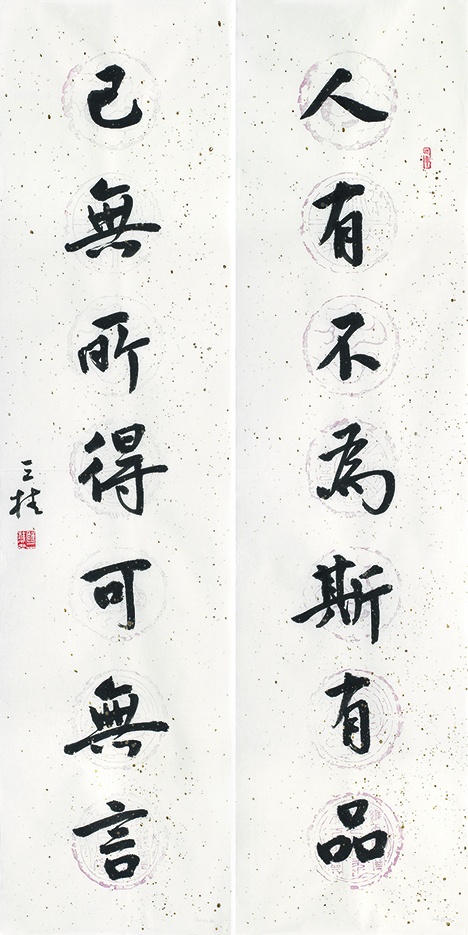 人有不為斯有品
己無所得可無言
三桂